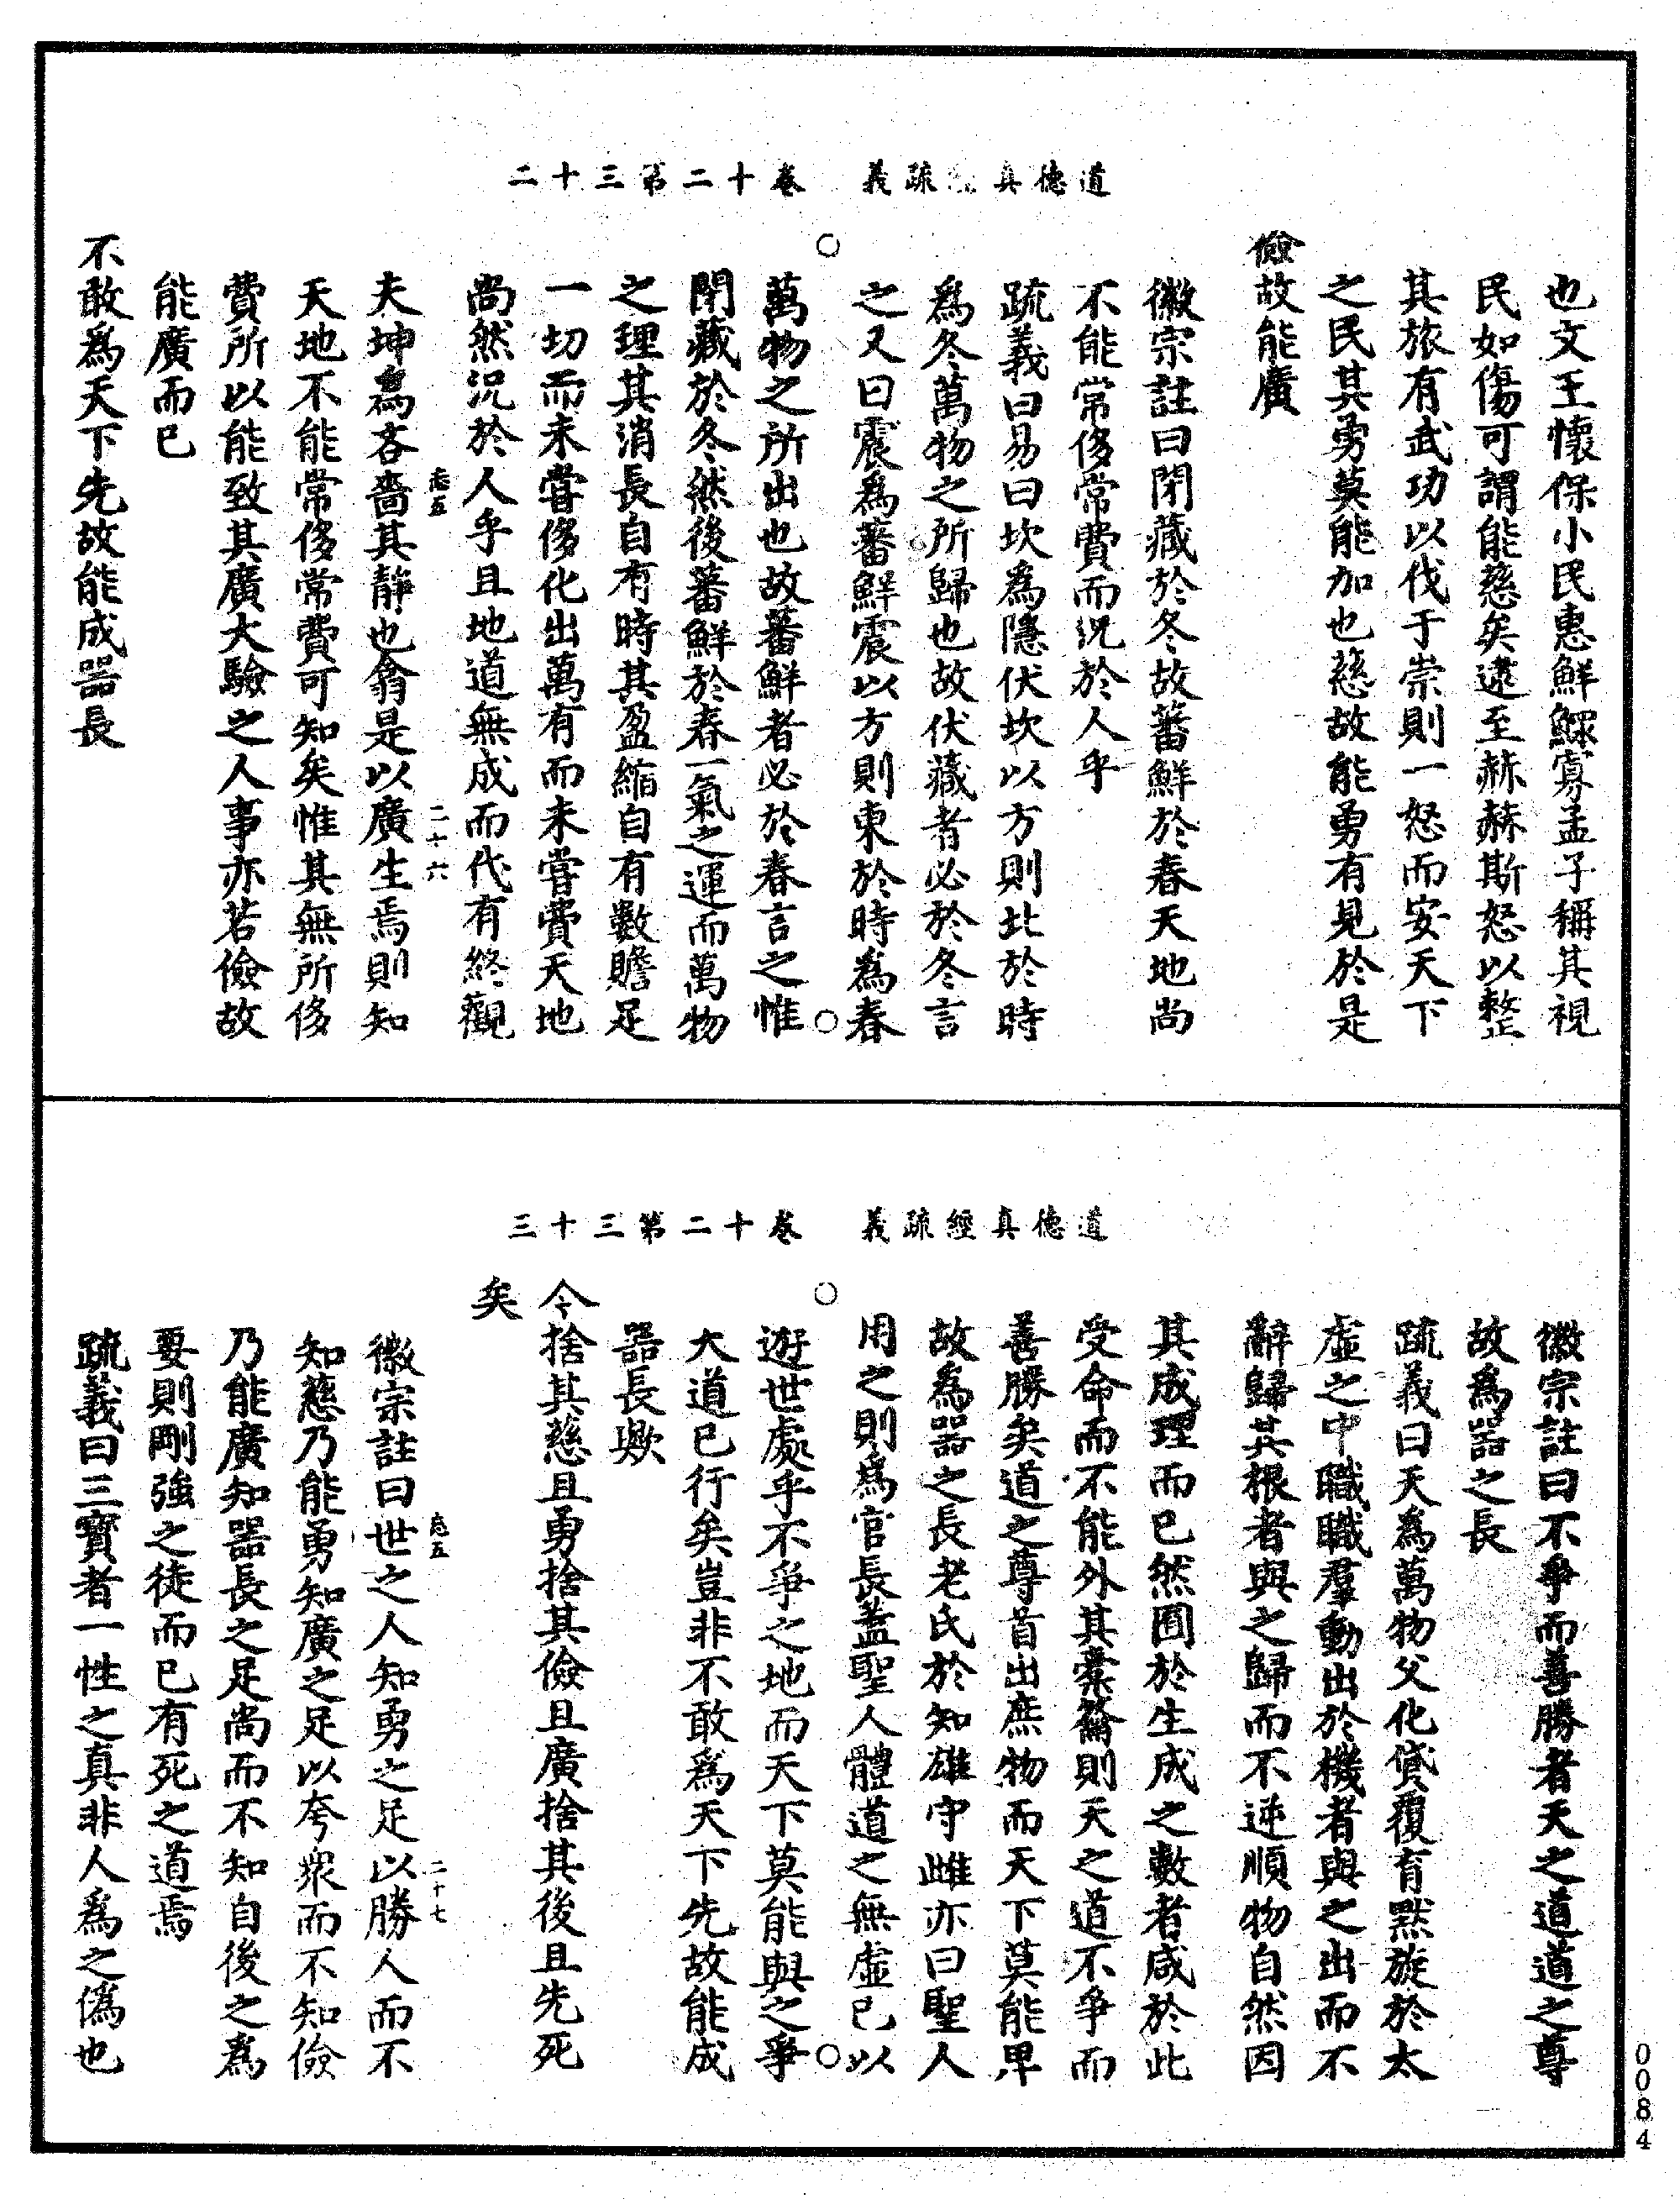 道德真　疏義　卷十二第三十二
也文王懷保小民惠鮮鰥寡孟子稱其視
民如傷可謂能慈矣逮至赫赫斯怒以整
其旅有武功以伐于崇則一怒而安天下
之民其勇莫能加也慈故能勇有見於是
儉故能廣
徽宗註曰閉藏於冬故蕃鮮於春天地尚
不能常侈常費而況於人乎
疏義曰易曰坎為隱伏坎以方則北於時
為冬萬物之所歸也故伏藏者必於冬言
之又曰震為蕃鮮震以方則東於時為春
萬物之所出也故蕃鮮者必於春言之惟
閉藏於冬然後蕃鮮於春一氣之運而萬物
之理其消長自有時其盈縮自有數贍足
一切而未嘗侈化出萬有而未嘗費天地
尚然況於人乎且地道無成而代有終觀
夫坤為吝嗇其靜也翕是以廣生焉則知
五
二十六
天地不能常侈常費可知矣惟其無所侈
費所以能致其廣大驗之人事亦若儉故
能廣而已
不敢為天下先故能成器長
道德真經疏義　卷十二第三十三
徽宗註曰不爭而善勝者天之道道之尊
故為器之長
疏義曰天為萬物父化貸覆育默旋於太
虛之中職職羣動出於機者與之出而不
辭歸其根者與之歸而不逆順物自然因
其成理而已然囿於生成之數者咸於此
受命而不能外其橐籥則天之道不爭而
善勝矣道之尊首出庶物而天下莫能卑
故為器之長老氏於知雄守雌亦曰聖人
用之則為官長蓋聖人體道之無虛已以
遊世處乎不爭之地而天下莫能與之爭
大道已行矣豈非不敢為天下先故能成
器長歟
今捨其慈且勇捨其儉且廣捨其後且先死
矣
徽宗註曰世之人知勇之足以勝人而不
五
二十七
知慈乃能勇知廣之足以夸衆而不知儉
乃能廣知器長之足尚而不知自後之為
要則剛強之徒而已有死之道焉
疏義曰三寶者一性之真非人為之偽也
0084